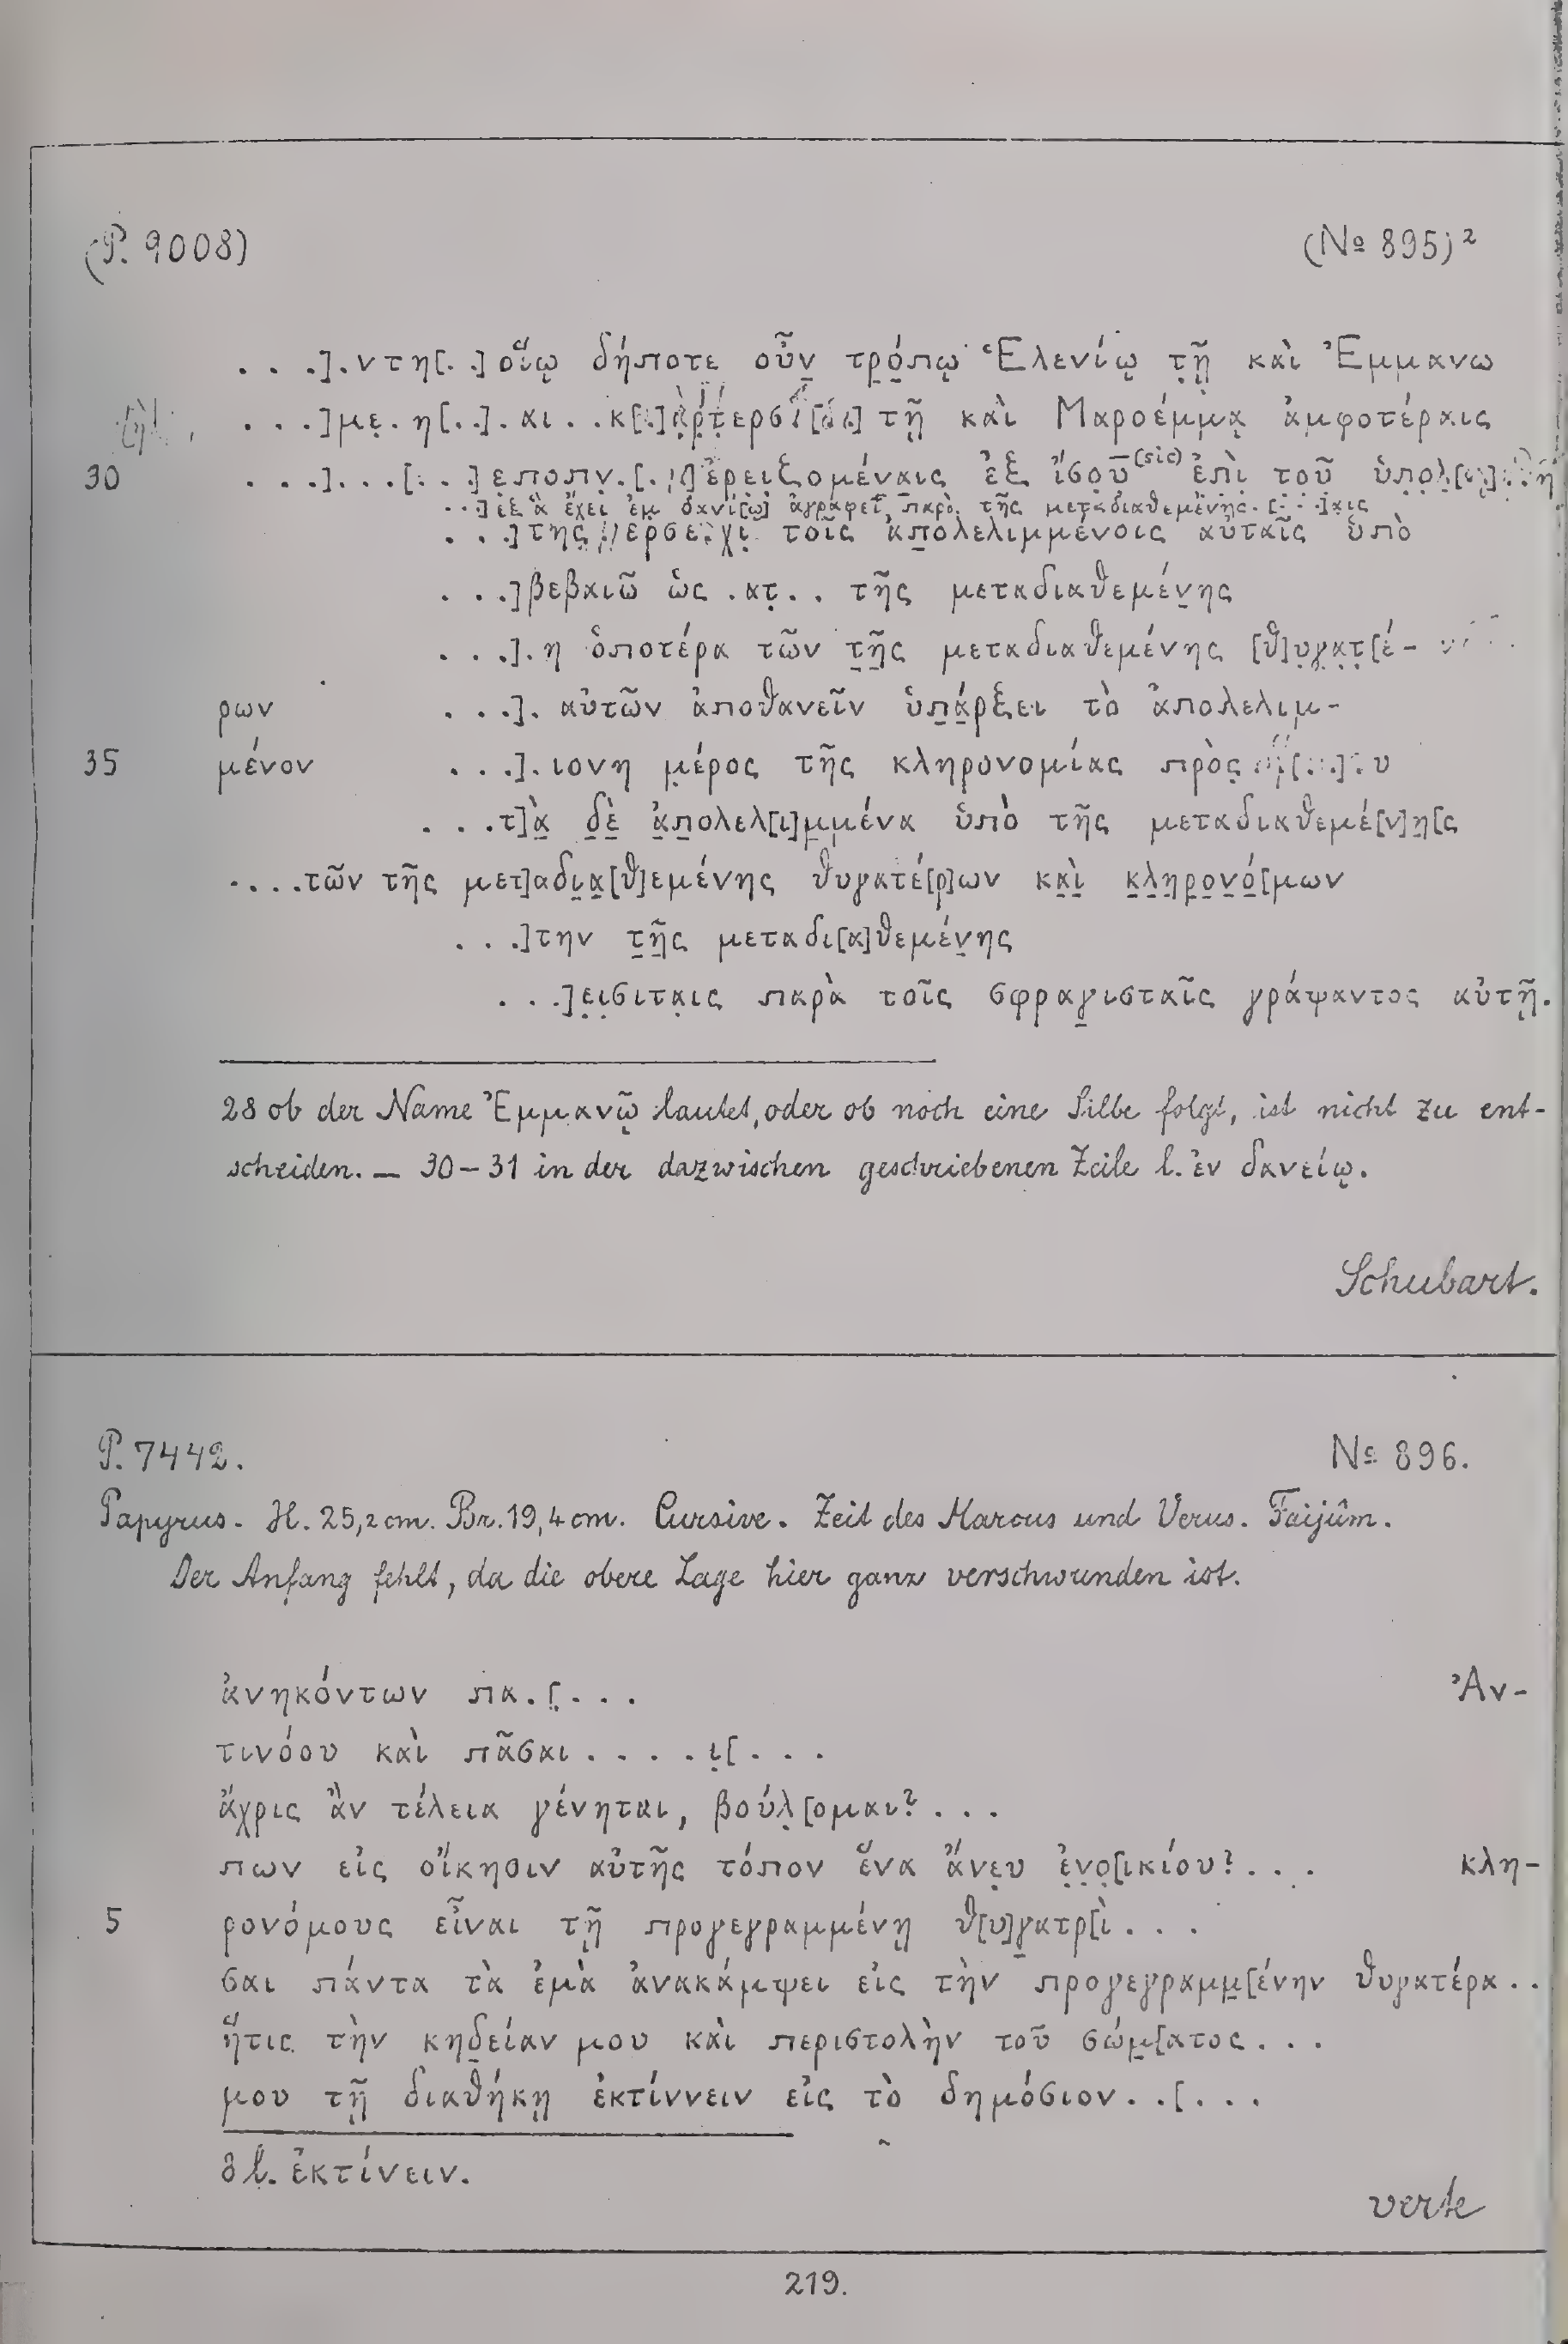 (P. 9008) (№ 895)²
. . .].ντη[. .] οἵῳ δήποτε οὖν τρόπῳ Ἑλενίῳ τῇ καὶ Ἐμμανω
. . .]με. η[..]. αι . . κ[.] τῇ καὶ Μαροέμμᾳ ἀμφοτέραις
30 . . .]. . .[. . .] ἐξ ἴσου (sic) ἐπὶ τοῦ
. . .] ἃ ἔχει ἐμ δανί[ῳ] παρὰ τῆς μεταδιαθεμένης. [. . .]αις
. . .] της τοῖς ἀπολελιμμένοις αὐταῖς ὑπὸ
. . .] βεβαιῶ ὡς .ατ. . τῆς μεταδιαθεμένης
. . .]. η ὁποτέρα τῶν τῆς μεταδιαθεμένης [θ]υγατ[έ-
ρων . . .]. αὐτῶν ἀποθανεῖν ὑπάρξει τὸ ἀπολελιμ-
35 μένον . . .]. ιονη μέρος τῆς κληρονομίας πρὸς
. . .τ]ὰ δὲ ἀπολελ[ι]μμένα ὑπὸ τῆς μεταδιαθεμέ[ν]η[ς
. . . .τῶν τῆς μετ]αδια[θ]εμένης θυγατέ[ρ]ων καὶ κληρονό[μων
. . .]την τῆς μεταδι[α]θεμένης
. . .]εισιταις παρὰ τοῖς σφραγισταῖς γράψαντος αὐτῇ.
28 ob der Name Ἐμμανῷ lautet, oder ob noch eine Silbe folgt, ist nicht zu ent-
scheiden. — 30–31 in der dazwischen geschriebenen Zeile l. ἐν δανείῳ.
Schubart.
P. 7442. № 896.
Papyrus. H. 25,2 cm. Br. 19,4 cm. Cursive. Zeit des Marcus und Verus. Faijûm.
Der Anfang fehlt, da die obere Lage hier ganz verschwunden ist.
ἀνηκόντων πα.[. . . Ἀν-
τινόου καὶ πᾶσαι . . . . ι[. . .
ἄχρις ἂν τέλεια γένηται, βούλ[ομαι? . . .
πων εἰς οἴκησιν αὐτῆς τόπον ἕνα ἄνευ ἐνο[ικίου? . . . κλη-
5 ρονόμους εἶναι τῇ προγεγραμμένῃ θ[υ]γατρ[ὶ . . .
σαι πάντα τὰ ἐμὰ ἀνακάμψει εἰς τὴν προγεγραμμ[ένην θυγατέρα . .
ἥτις τὴν κηδείαν μου καὶ περιστολὴν τοῦ σώμ[ατος . . .
μου τῇ διαθήκῃ ἐκτίννειν εἰς τὸ δημόσιον . .[. . .
8 l. ἐκτίνειν.
verte
219.